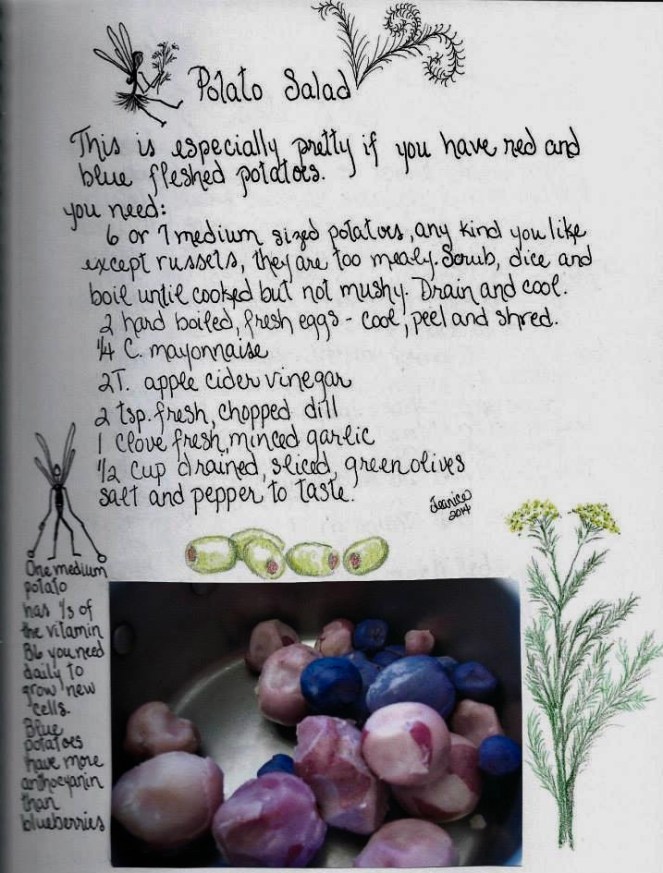 Potato Salad
This is especially pretty if you have red and
blue fleshed potatoes.
you need:
6 or 7 medium sized potatoes, any kind you like
except russets, they are too mealy. Scrub, dice and
boil until cooked but not mushy. Drain and cool.
2 hard boiled, fresh eggs - cool, peel and shred.
1/4 C. mayonnaise
2T. apple cider vinegar
2 tsp. fresh, chopped dill
1 clove fresh, minced garlic
1/2 cup drained, sliced, green olives
salt and pepper to taste.
Jeanica
2014
One medium
potato
has 1/3 of
the vitamin
B6 you need
daily to
grow new
cells.
Blue
potatoes
have more
anthocyanin
than
blueberries